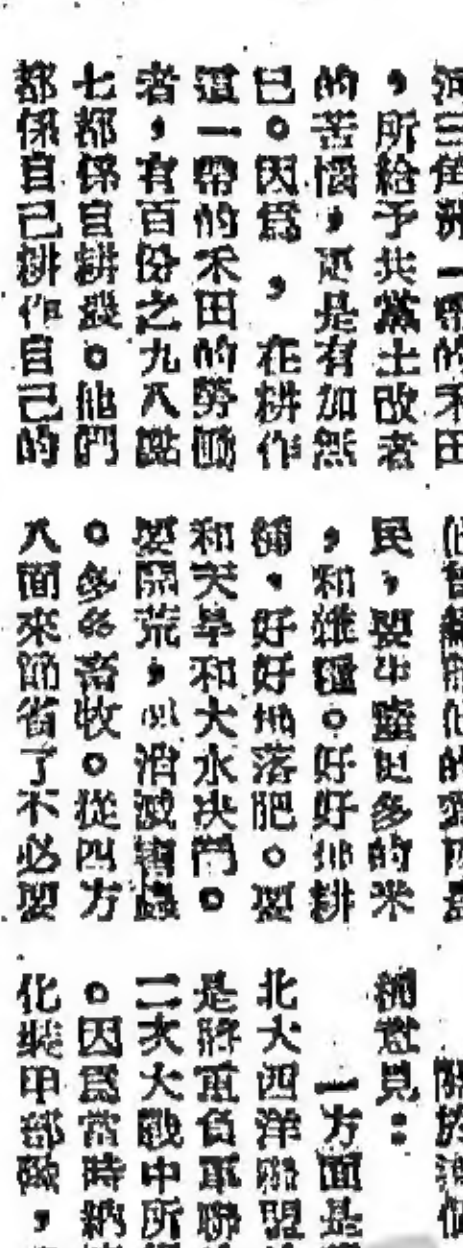 河三角洲一帶的禾田
，所給予共黨土改者
的苦惱，更是有加無
已。因爲，在耕作
這一帶的禾田的勞働
者，有百份之九八點
七都係自耕農。他們
都係自己耕作自己的
民，要生產更多的米
，和雜糧。好好地耕
種，好好地落肥。要
和天旱和大水决鬥。
要開荒，以消滅害蟲
。多多畜牧。從四方
八面來節省了不必要
種意見：
一方面是
北大西洋聯盟
是將重負軍聯
二次大戰中所
。因爲當時納
化裝甲部隊，